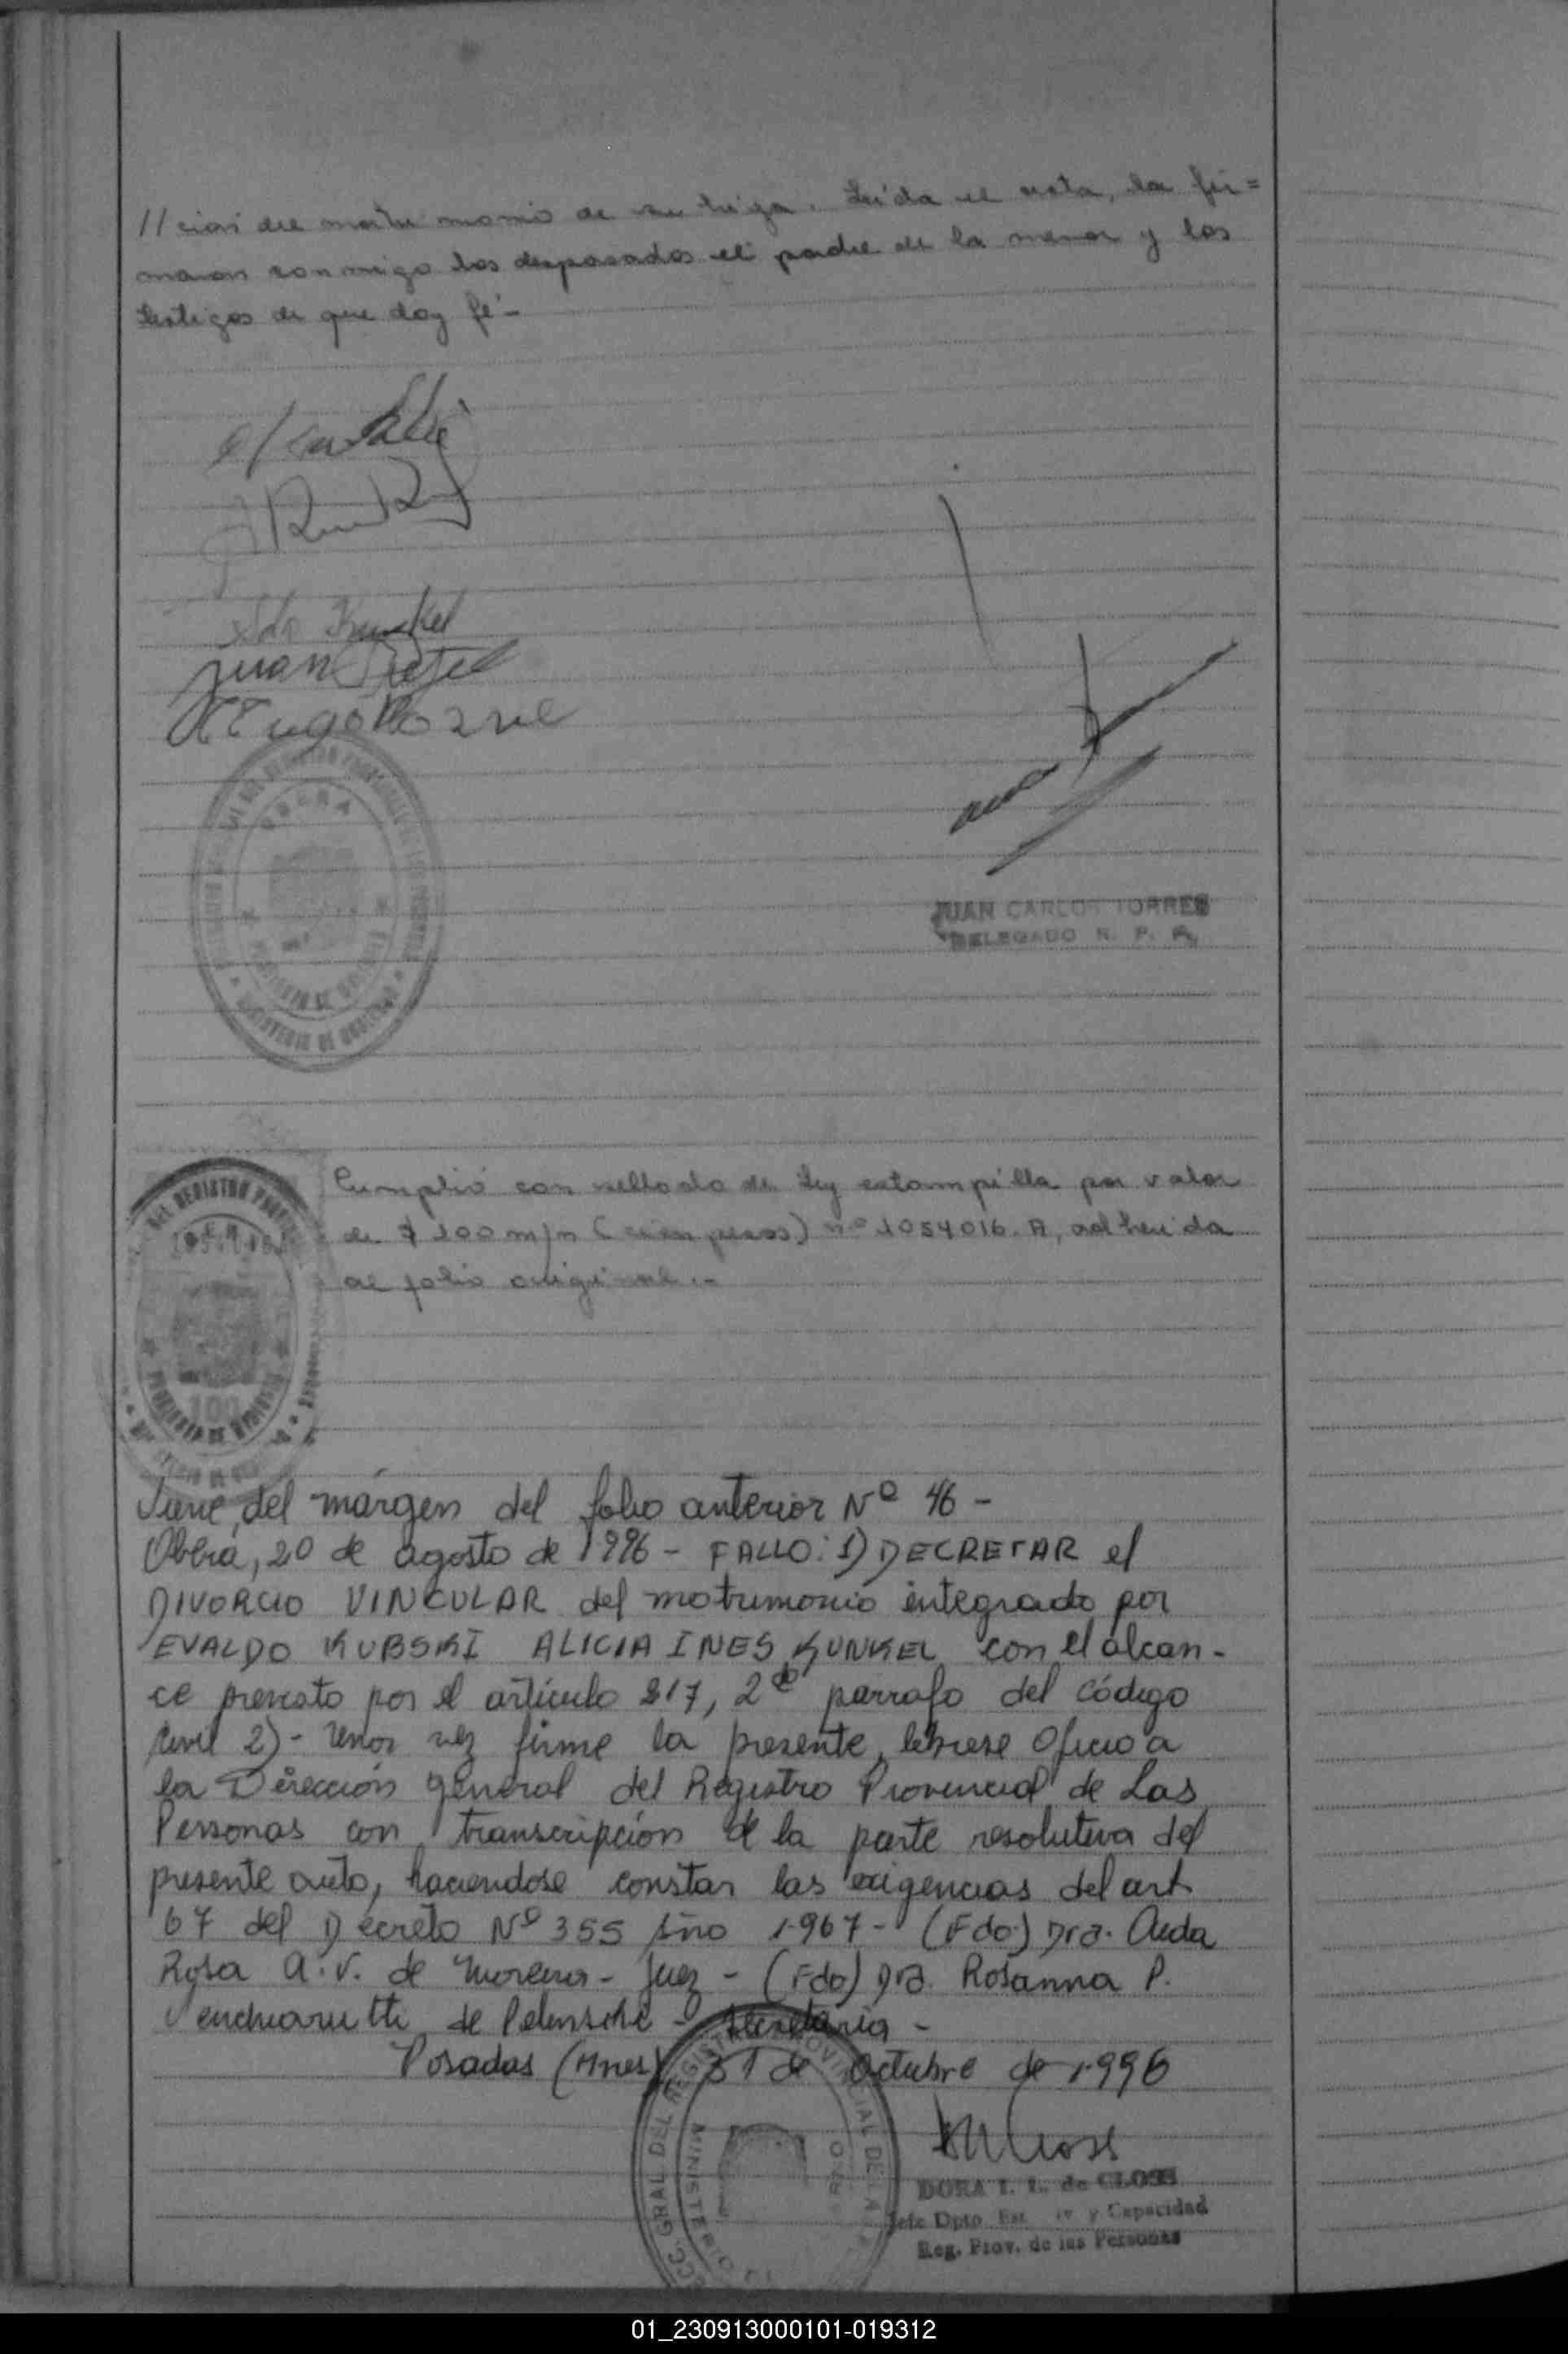 //ción del matrimonio de su hija. Leída el acta, la fir=
maron conmigo los desposados el padre de la menor y los
testigos de que doy fé-
Kunkel
Juan
Hugo
JUAN CARLOS TORRES
DELEGADO R. P. P.
OBERA
PROVINCIA DE MISIONES
MINISTERIO DE GOBIERNO
DEL REGISTRO PROVINCIAL
Cumplió con sellado de ley estampilla por valor
de $ 100 m/n (cien pesos) nº 1054016. A, adherida
al folio original.-
100
PROVINCIA DE MISIONES
Viene del márgen del folio anterior Nº 46 -
Oberá, 20 de agosto de 1996 - FALLO: 1) DECRETAR el
DIVORCIO VINCULAR del matrimonio integrado por
EVALDO KUBSKI ALICIA INES KUNKEL con el alcan-
ce previsto por el artículo 217, 2do parrafo del código
Civil 2)- Una vez firme la presente, líbrese Oficio a
la Dirección general del Registro Provincial de Las
Personas con transcripción de la parte resolutiva del
presente auto, haciendose constar las exigencias del art
67 del Decreto Nº 355 Año 1.967 - (Fdo) Dra. Aida
Rosa A. V. de Moreira - Juez - (Fdo) Dra. Rosanna P.
Venchiarutti de - Secretaria -
Posadas (Mnes) 31 de Octubre de 1.996
GRAL DEL REGISTRO PROVINCIAL DE LA
MINISTERIO
DORA I. L. de CLOSS
Jefe Dpto. Est. iv y Capacidad
Reg. Prov. de las Personas
01_230913000101-019312